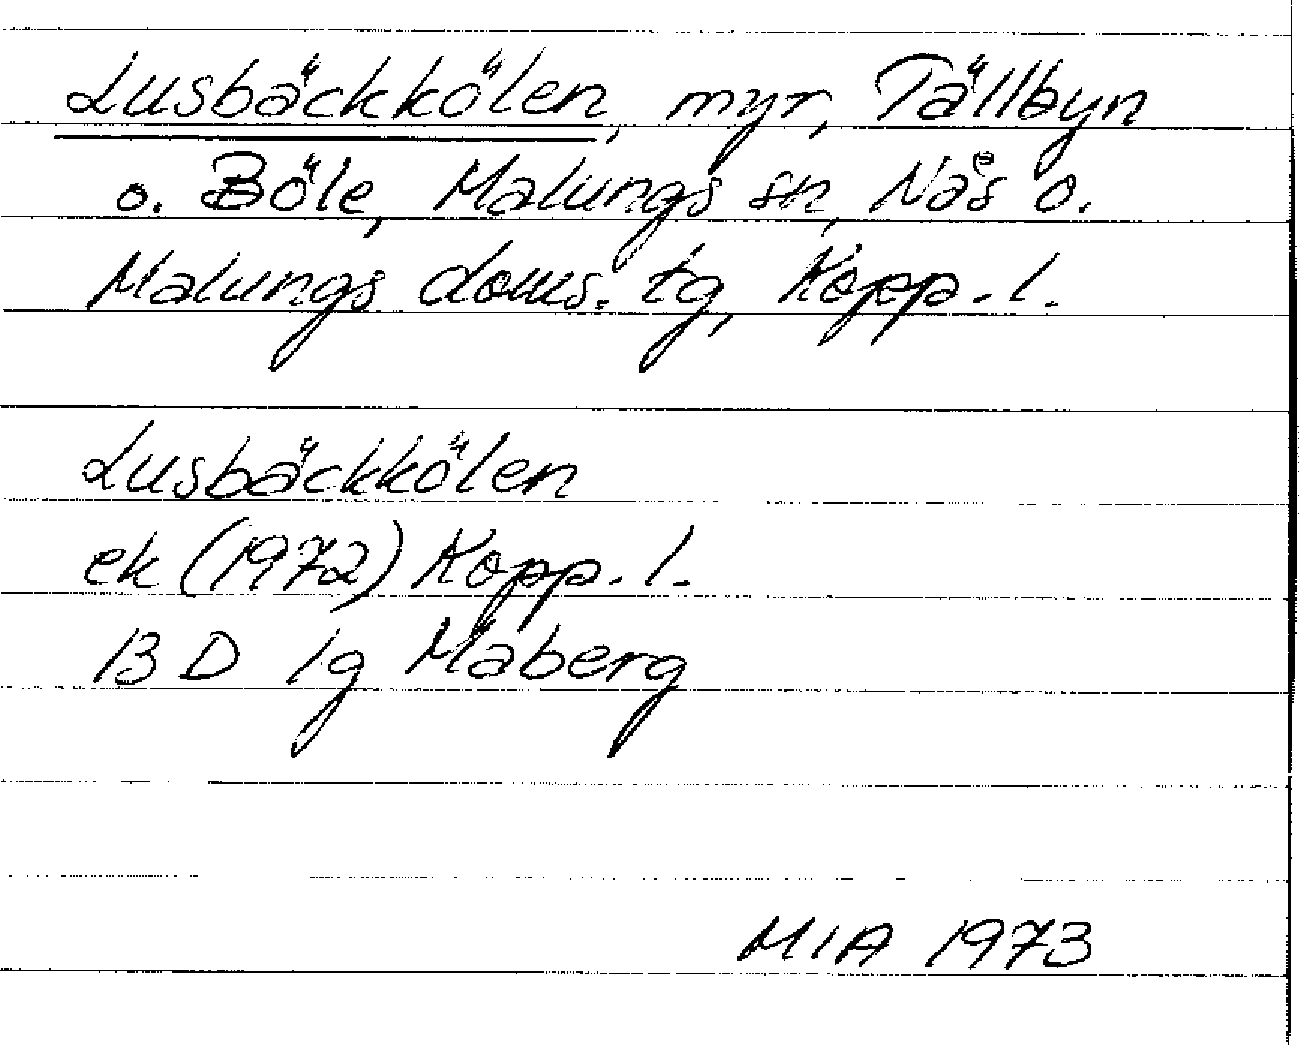 Lusbäckkölen, myr, Tällbyn
o. Böle, Malungs sn, Nås o.
Malungs doms. tg, Kopp. l.
Lusbäckkölen
ek (1972) Kopp. l.
13 D 1g Maberg
MIA 1973